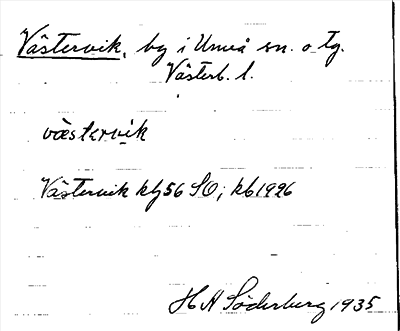 Västervik, by i Umeå sn. o tg.
Västerb. l.
västervik
Västervik kbj56 SO; kb1926
H A Söderburg 1935